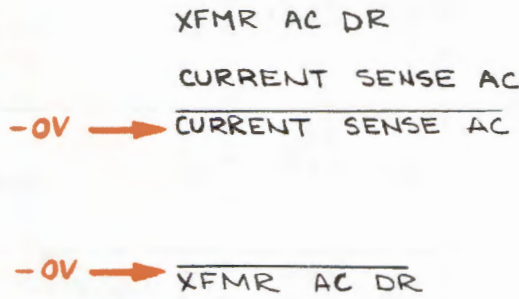 XFMR AC DR
CURRENT SENSE AC
-OV → CURRENT SENSE AC
-OV → XFMR AC DR